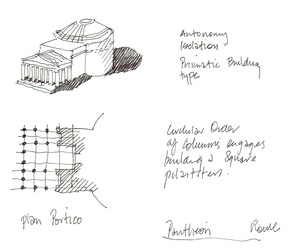 Autonomy
Isolation
Prismatic Building
type
Circular Order
of columns engages
building a square
plan Portico
Pantheon Rome